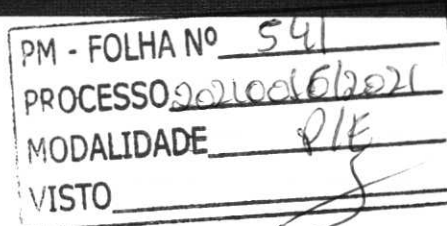 PM - FOLHA Nº 541
PROCESSO 20210016/2021
MODALIDADE P/E
VISTO